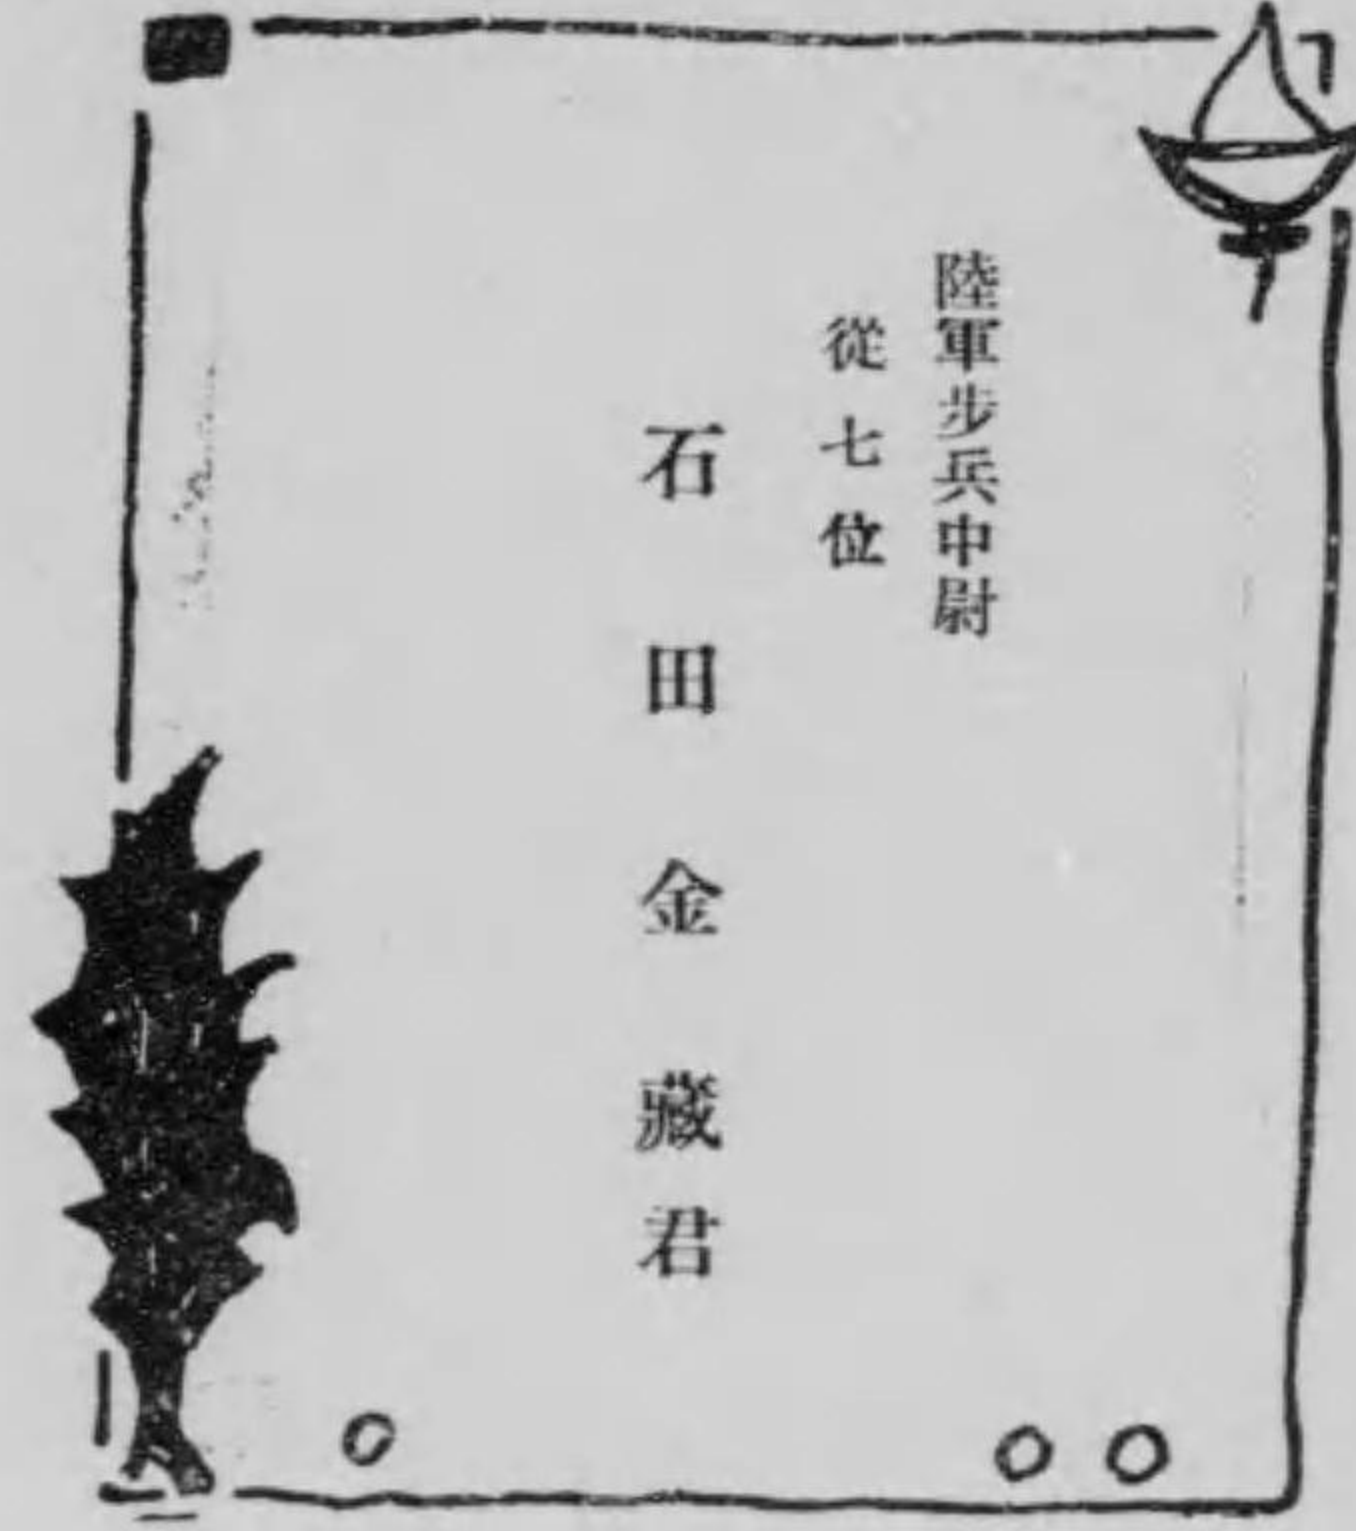 陸軍步兵中尉
從七位
石田金藏君